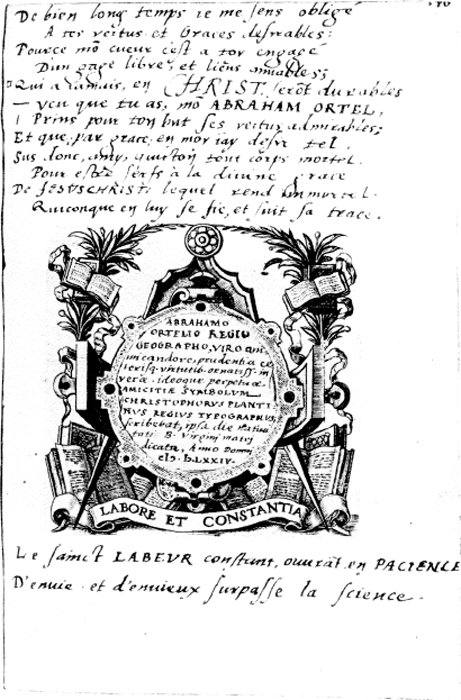 De bien long temps ie me sens obligé
A tes vertus et Graces desirables:
Pource mõ cueur c'est a toy engagé
D'un gage libre, et liens amiables;
Qui a iamais, en CHRIST, serõt durables
veu que tu as, mõ ABRAHAM ORTEL,
Prins pour ton but ses vertus admirables;
Et que, par grace, en moy iay desir tel.
Sus donc, amy, quictõs tout corps mortel.
Pour estre serfs à la divine grace
De JESUSCHRIST: lequel rend immortel
Quiconque en luy se fie, et suit sa trace.
ABRAHAMO
ORTELIO REGIO
GEOGRAPHO, VIRO
candore, prudentia
virtutib. ornatiss.
veræ, ideoque perpetuæ
AMICITIÆ SYMBOLUM
CHRISTOPHORUS PLANTI
NUS REGIUS TYPOGRAPHUS,
scribebat, ipsa die Nativi
tati B. Virgini matri
dicata, Anno Domini
LXXIV.
LABORE ET CONSTANTIA
Le sainct LABEUR constant, ouvrãt en PACIENCE
D'envie et d'envieux surpasse la science.